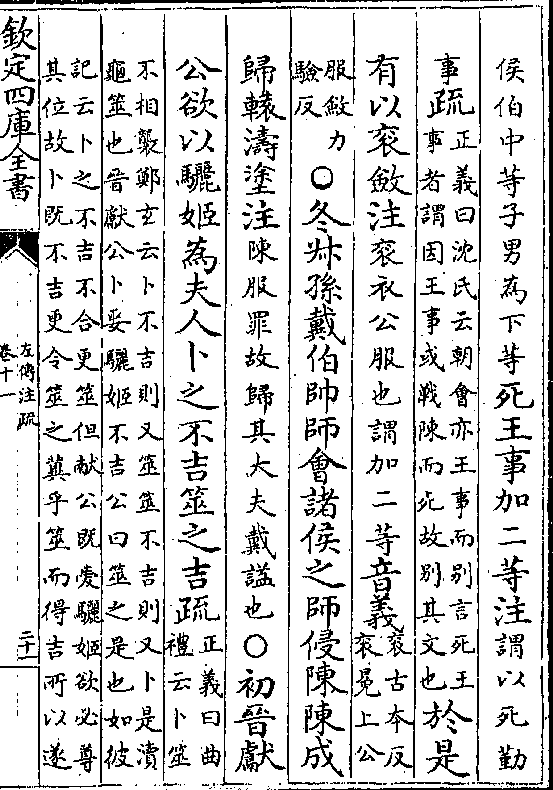 侯伯中等子男為下等死王事加二等注謂以死勤
事疏正義曰沈氏云朝會亦王事而别言死王
事者謂因王事或戰陳而死故别其文也於是
有以衮斂注衮衣公服也謂加二等音義衮古本反
衮冕上公
服斂力
驗反○冬叔孫戴伯帥師會諸侯之師侵陳陳成
歸轅濤塗注陳服罪故歸其大夫戴謚也○初晉獻
公欲以驪姬為夫人卜之不吉筮之吉疏正義曰曲
禮云卜筮
不相襲鄭玄云卜不吉則又筮筮不吉則又卜是瀆
龜筮也晉獻公卜娶驪姬不吉公曰筮之是也如彼
記云卜之不吉不合更筮但献公既愛驪姬欲必尊
其位故卜既不吉更令筮之冀乎筮而得吉所以遂
欽定四庫全書
左傳注疏
卷十一
二十一